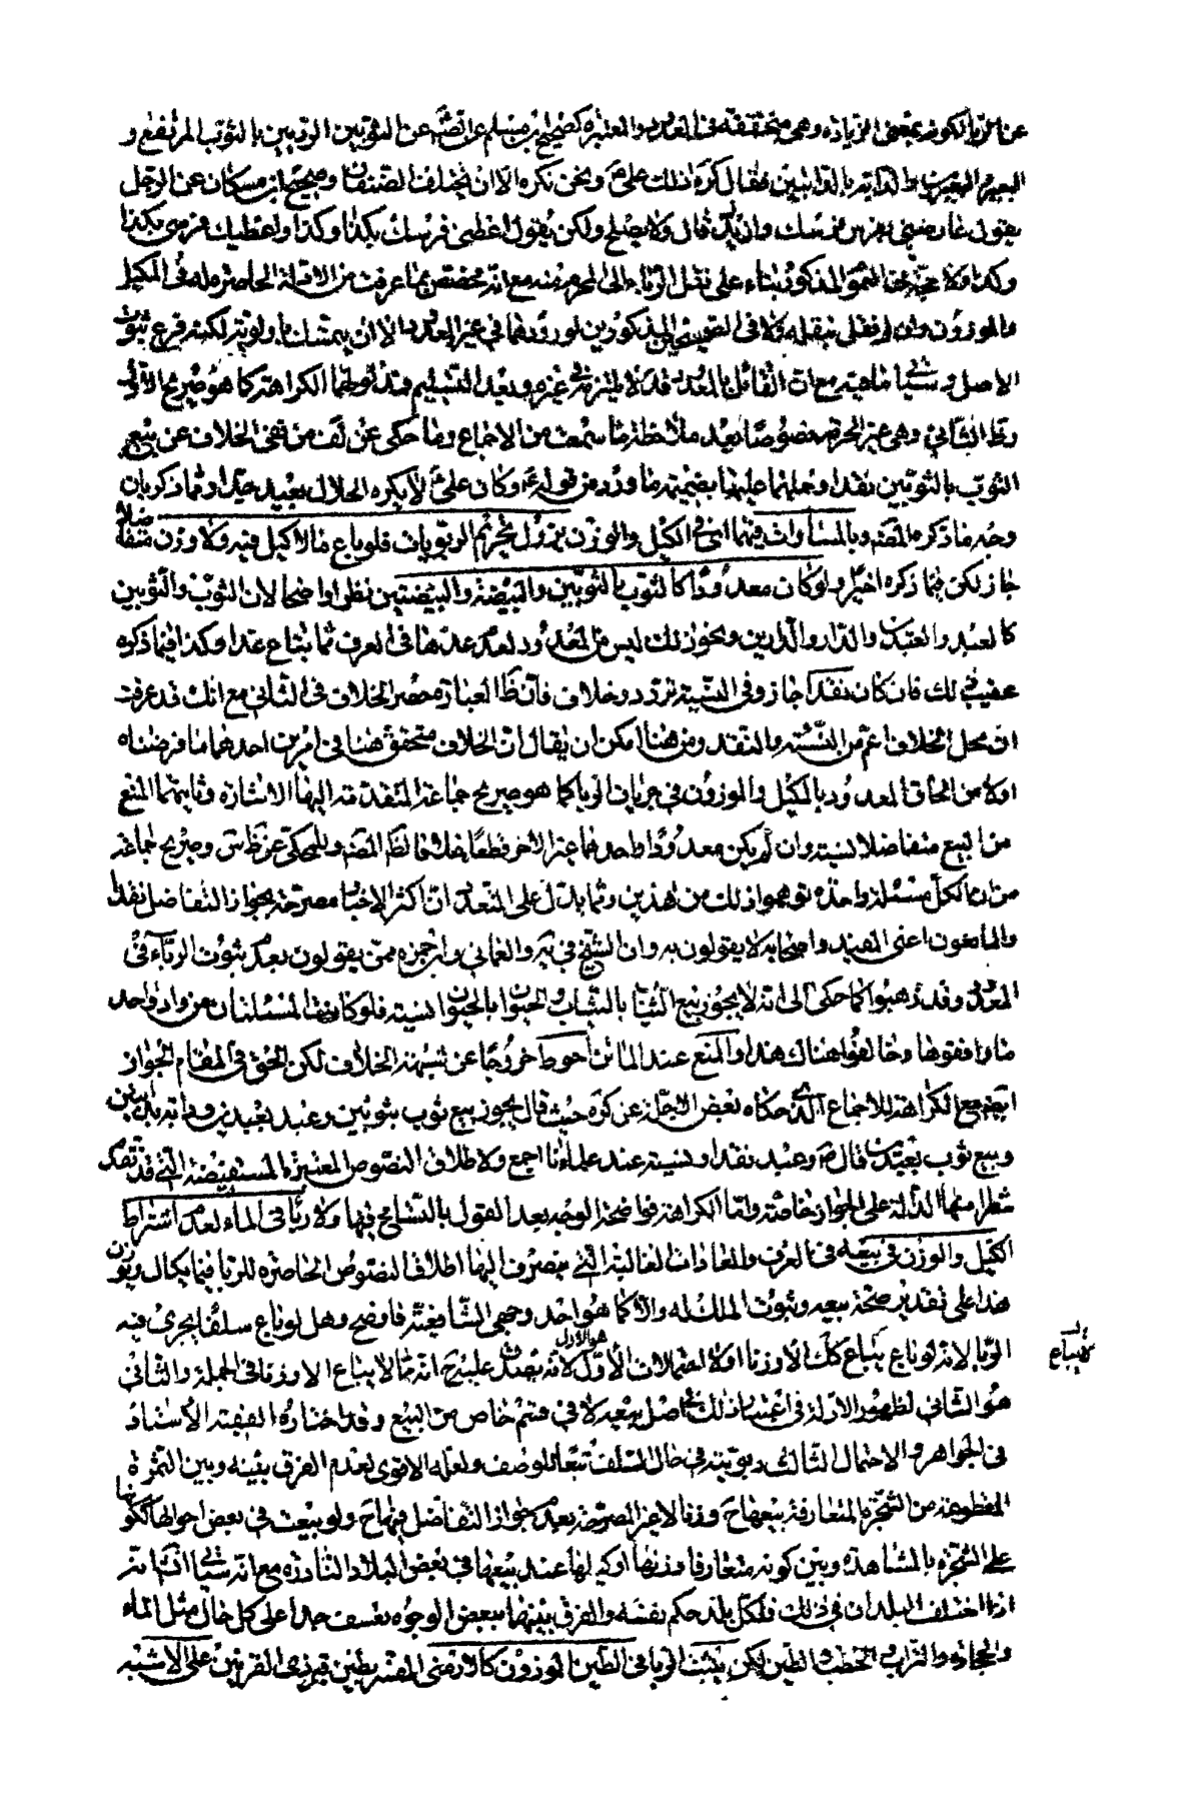 عن الربا لكونه بمعنى الزيادة وهي متحققة في المعدود والمعتبرة كصحيح بن مسلم عن الثوبين الرديين بالثوب المرتفع و
البعير بالبعيرين والدابة بالدابتين فقال كره ذلك علي ع ونحن نكره الا ان يختلف الصنفان وصحيح ابن مسكان عن الرجل
يقول عاوضني بفرسي فرسك وازيدك قال ولا يصلح ولكن يقول اعطني فرسك بكذا وكذا واعطيك فرسي بكذا
وكذا ولا حجة في العموم المذكور بناء على نقل الربا الى المحرم منه مع انه مختص بما عرفت من الادلة الحاصرة له في المكيل
والموزون وان لم نقل بنقله ولا في الصحيحين المذكورين لورودهما في غير المعدود الا ان يتمسك بالاولوية لكنه فرع ثبوت
الاصل و ستسمع ما فيه مع ان القائل بالمعدود قد لا يلتزم في غيره وبعد التسليم فمدلولهما الكراهة كما هو صريح الاول
وظ الثاني وهي غير الحرمة خصوصا بعد ملاحظة ما سمعت من الاجماع وما حكي عن لف من نفي الخلاف عن بيع
الثوب بالثوبين نقدا وحملهما عليها بضميمة ما ورد من قوله ع وكان علي ع لا يكره الحلال بعيد جدا ومما ذكر بان
وجه ما ذكره المصنف وبالمساواة فيهما اى في الكيل والوزن يزول تحريم الربويات فلو باع ما لا كيل فيه ولا وزن متفاضلا
جاز لكن فيما ذكره اخيرا ولو كان معدودا كالثوب بالثوبين والبيضة والبيضتين نظرا واضحا لان الثوب والثوبين
كالعبد والعبدين والدار والدارين ونحو ذلك ليس من المعدود لعدم عدها في العرف مما يتباع عدا وكذا فيما ذكره
عقيب ذلك فان كان نقدا جاز وفي النسية تردد وخلاف فان ظ العبارة حصر الخلاف في الثاني مع انك قد عرفت
ان محل الخلاف اعم من النسية والنقد ومن هنا امكن ان يقال ان الخلاف متحقق هنا في امرين احدهما ما فرضناه
اولا من الحاق المعدود بالمكيل والموزون في جريان الربا كما هو صريح جماعة المتقدمة اليها الاشارة وثانيهما المنع
من البيع متفاضلا نسية وان لم يكن معدودا واحدهما غير الاخر قطعا خلافا لظ المصنف والمحكي عن ظ س وصريح جماعة
من ان الكل مسئلة واحدة توهموا ذلك من هذين ومما يدل على التعدد ان اكثر الاخبار مصرحة بجواز التفاضل نقدا
والمانعون اعني المفيد واصحابه لا يقولون به وان الشيخ في يه والعماني وابن حمزة ممن يقولون بعدم ثبوت الربا في
المعدود وقد ذهبوا كما حكى الى انه لا يجوز بيع الثياب بالثياب والحيوان بالحيوان نسية فلو كانت المسئلتان من واد واحد
ما وافقوها وخالفوا هناك هذا والمنع عند الماتن احوط خروجا عن شبهة الخلاف لكن الحق في المقام الجواز
ايضا مع الكراهة للاجماع الذي حكاه بعض الاجلة عن كره حيث قال يجوز بيع ثوب بثوبين وعبد بعبدين ودابة بدابتين
وبيع ثوب بعبدين قال و عبد نقدا ونسية عند علمائنا اجمع ولاطلاق النصوص المعتبرة المستفيضة التي قد تقدم
شطر منها الدالة على الجواز خاصة واما الكراهة فواضحة الوجه بعد القول بالتسامح فيها ولا ربا في الماء لعدم اشتراط
الكيل والوزن في بيعه في العرف والعادات الغالبة التي ينصرف اليها اطلاق النصوص الحاصرة للربا فيما يكال ويوزن
هذا على تقدير صحة بيعه وثبوت الملك له والا كما هو احد وجهي الشافعية فاوضح وهل لو باع سلفا يجري فيه
الربا لانه لو باع يتباع كك الا وزنا اولا احتمالات الاول لانه يصدق عليه ح انه مما لا يتباع الا وزنا في الجملة والثاني
هو الاول
لا يتباع
هو الثاني لظهور الادلة في اعتبار ذلك في اصل بيعه لا في قسم خاص من البيع وقد اختاره الفقيه الاستاد
في الجواهر والاحتمال الثالث ربويته في حال السلف تبعا للوصف ولعله الاقوى لعدم الفرق بينه وبين الثمرة
المقطوعة من الشجرة المتعارفة بيعها ح وزنا لا غير المصرحة بعدم جواز التفاضل فيها ح ولو بيعت في بعض احوالها ككونها
على الشجرة بالمشاهدة وبين كونه متعارفا وزنها او كيلها عند بيعها في بعض البلاد النادرة مع انه سياتي انه
اذا اختلف البلدان في ذلك فلكل بلد حكم نفسه والفرق بينهما ببعض الوجوه تعسف جدا على كل حال مثل الماء
والحجارة والتراب و الحطب والطين لكن يثبت الربا في الطين الموزون كالارمني المفسر بطين قبر ذي القرنين على الاشبه